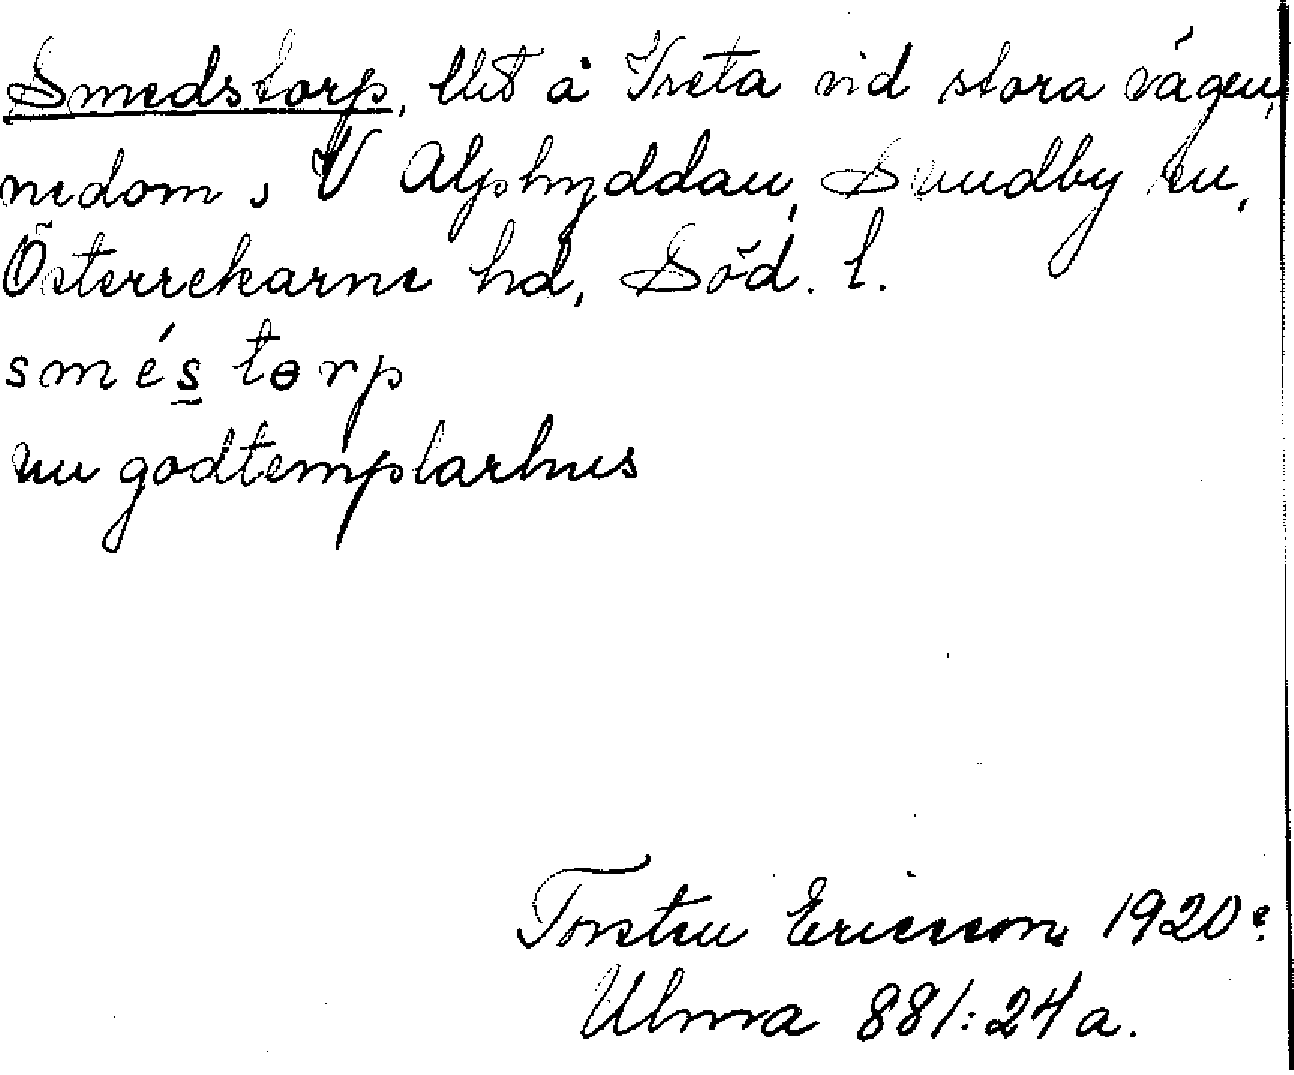 Smedstorp, lht å Vreta vid stora vägen,
nedom, V Alphyddan, Sundby sn,
Österrekarne hd, Söd. l.
smés tɵrp
nu godtemplarhus
Torsten Ericsson 1920
Ulma 881:24 a.